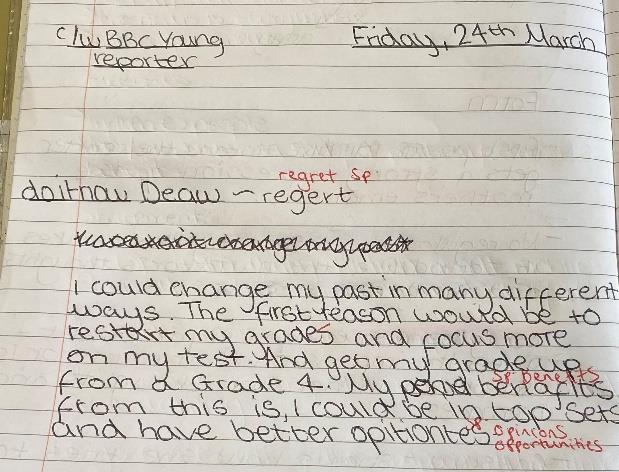 c/w BBC Young Friday, 24th March
reporter
regret sp
doitnow Deaw - regert
I could change my past in many different
ways. The first reason would be to
restart my grades and focus more
on my test. And get my grade up
from a Grade 4. My benafits sp benefits
from this is, I could be in top sets
and have better opitiontes opinions
opportunities